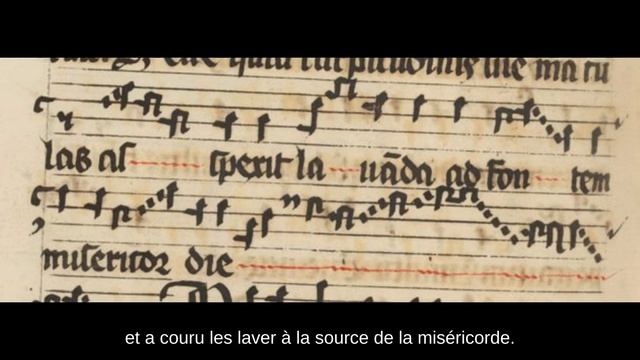 quia turpitudinis sue ma cu
las as spexit la uāda ad fon tem
misericor die
et a couru les laver à la source de la miséricorde.